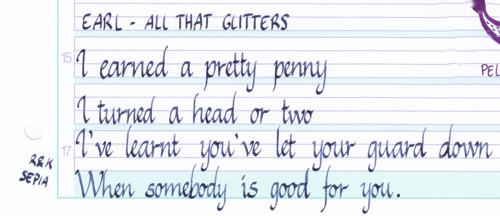 EARL - ALL THAT GLITTERS
15
I earned a pretty penny
PEL
I turned a head or two
17
I've learnt you've let your guard down
R&K
SEPIA
When somebody is good for you.